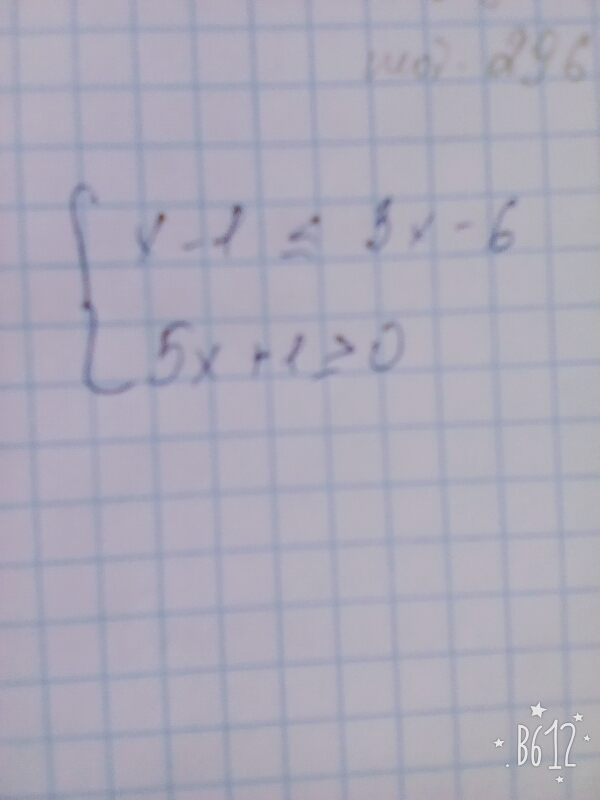 x - 1 ≤ 3x - 6
5x + 1 ≥ 0
B612